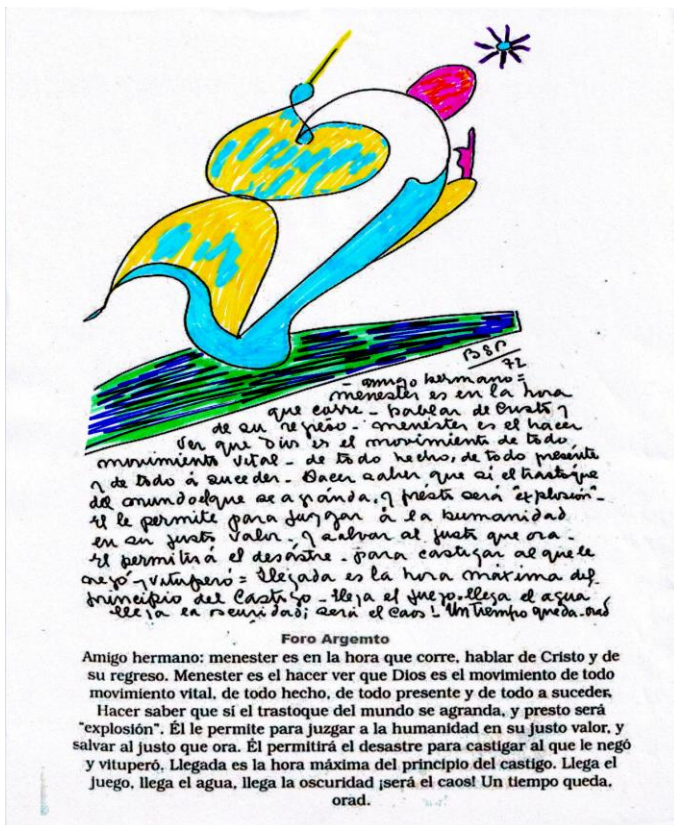 BSP
72
- amigo hermano =
menester es en la hora
que corre - hablar de Cristo y
de su regreso - menester es el hacer
ver que Dios es el movimiento de todo
movimiento vital - de todo hecho, de todo presente
y de todo á suceder - Hacer saber que si el trastoque
del mundo el que se agranda, y presto será "explosión" -
el le permite para juzgar à la humanidad
en su justo valor - y salvar al justo que ora -
el permitirá el desastre - para castigar al que le
negó y vituperó = Llegada es la hora máxima del
principio del Castigo - llega el fuego - llega el agua
llega la oscuridad; será el caos! Un tiempo queda - orad
Foro Argemto
Amigo hermano: menester es en la hora que corre, hablar de Cristo y de
su regreso. Menester es el hacer ver que Dios es el movimiento de todo
movimiento vital, de todo hecho, de todo presente y de todo a suceder.
Hacer saber que sí el trastoque del mundo se agranda, y presto será
"explosión". Él le permite para juzgar a la humanidad en su justo valor, y
salvar al justo que ora. Él permitirá el desastre para castigar al que le negó
y vituperó, Llegada es la hora máxima del principio del castigo. Llega el
juego, llega el agua, llega la oscuridad ¡será el caos! Un tiempo queda,
orad.